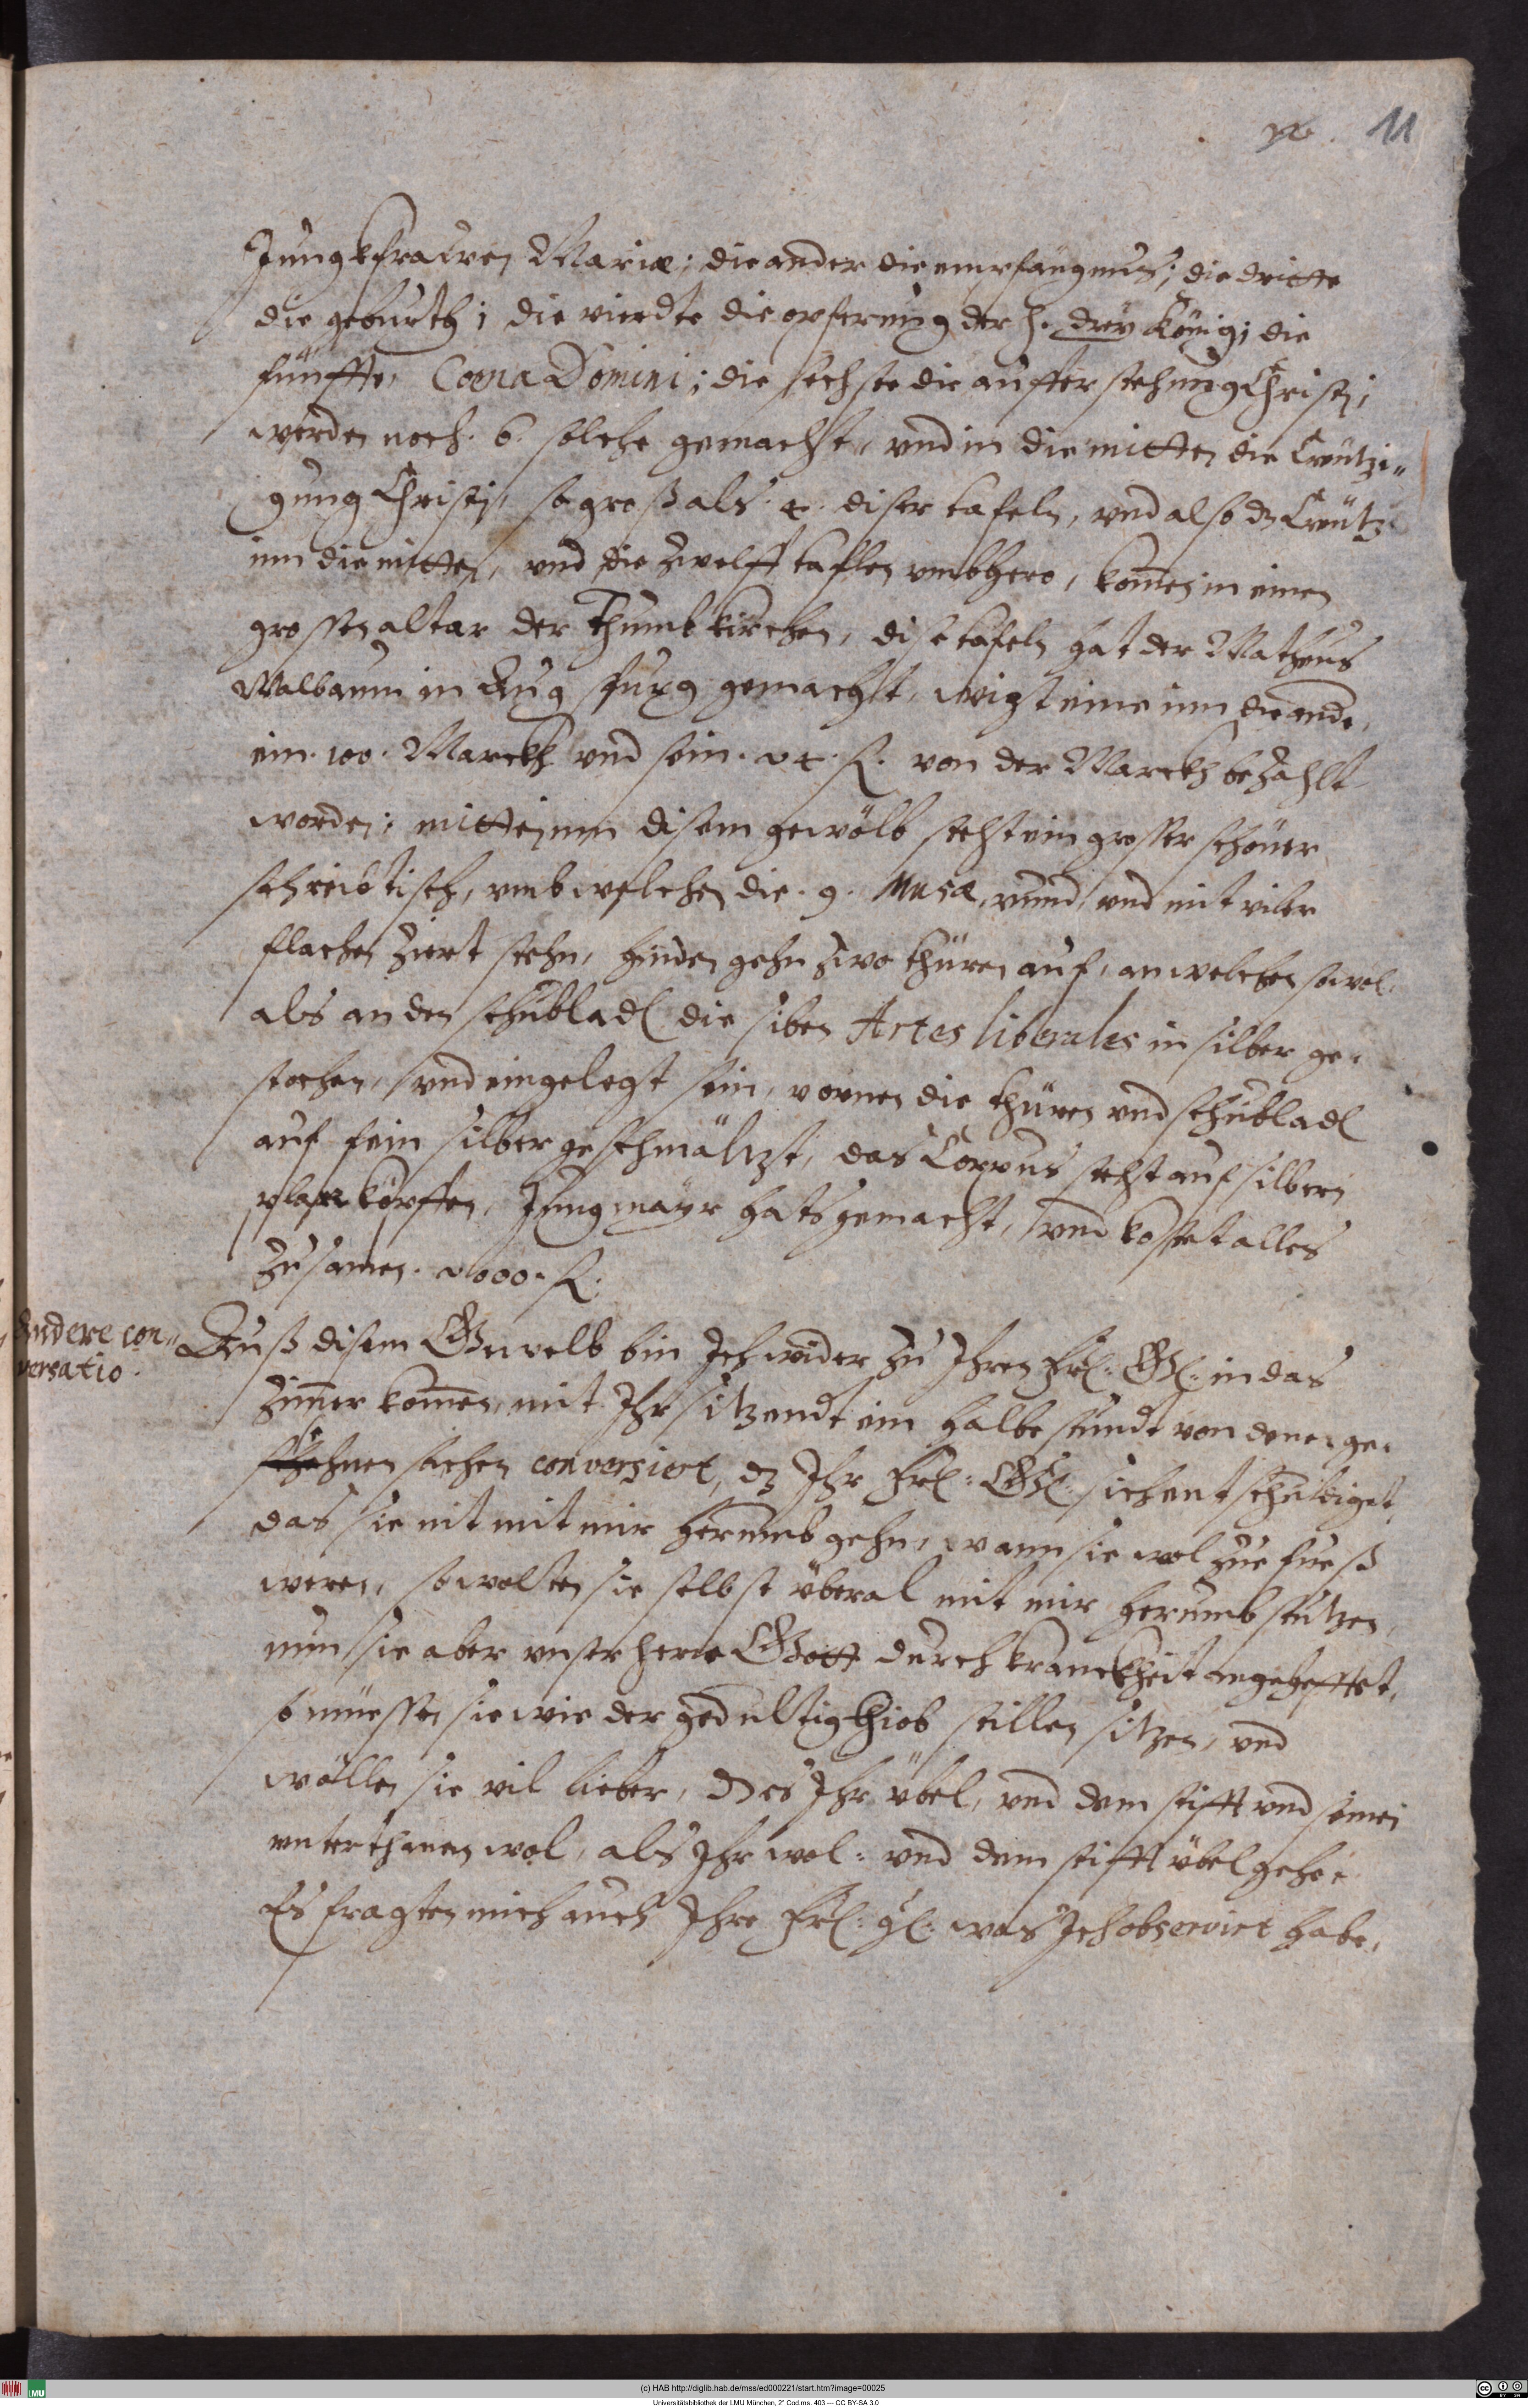 11
Jungkfrawen Mariæ; die ander die empfangnus; die dritte
die geburth; die vierdte die opferung der h. drey König; die
fünffte, Coena Domini; die sechste die aufferstehung Christj;
werden noch. 6. solche gemacht, vnd in die mitten die Creützi„
gung Christj, so groß als. 4. diser tafeln, vnd also dz Creütz
inn die mitten, vnd die zwelff taflen vmbhero, komen in einen
grossen altar der Thumbkirchen, dise tafeln hat der Matheus
Walbaum in Augspurg gemacht, wigt eine inn die ande,
ein. 100. Marckh vnd sein. 24. fl. von der Marckh bezahlt
worden; mitten inn disem gewölb steht ein grosser schöner
schreibtisch, vmb welchen die. 9. Musæ, rund, vnd mit viler
flachen ziert stehn, hinden gehn zwo thüren auf, an welchen sowol
als an den schubladl die siben Artes liberales in silber ge„
stochen, vnd eingelegt sein, vornen die thüren vnd schubladl
auf fein silber geschmältzt, das Corpus steht auf silbern
Jungmayr hats gemacht, vnd kostet alles
zusamen. 2000. fl.
Andere con„
versatio.
Auß disem Gewelb bin Jch wider zu Jhren Frl: Gl: in das
zimer komen, mit Jhr sitzendt ein halbe stundt von denen ge„
sehnen sachen conversiert, dz Jhr Frl: Gl: sich entschuldiget,
das sie nit mit mir herumb gehn, wann sie wol zue fueß
weren, so wolten sie selbst überal mit mir herumb stutzen,
nun sie aber vnser herr Gott durch kranckheit angehefftet,
so müessen sie wie der gedultig Hiob stillen sitzen, vnd
wöllen sie vil lieber, dz es Jhr übel, vnd dem stifft vnd seinen
vnterthanen wol, als Jhr wol: vnd dem stifft übel gehe.
Es fragten mich auch Jhre Frl: gl: was Jch observirt habe,
(c) HAB http://diglib.hab.de/mss/ed000221/start.htm?image=00025
Universitätsbibliothek der LMU München, 2° Cod.ms. 403 — CC BY-SA 3.0